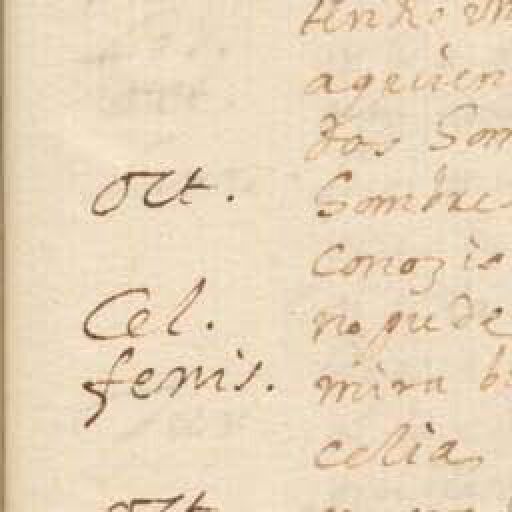 aquien
dos Som
Oct. Sombre
conozis
Cel. no pude
fenis. mira
celia
Oct